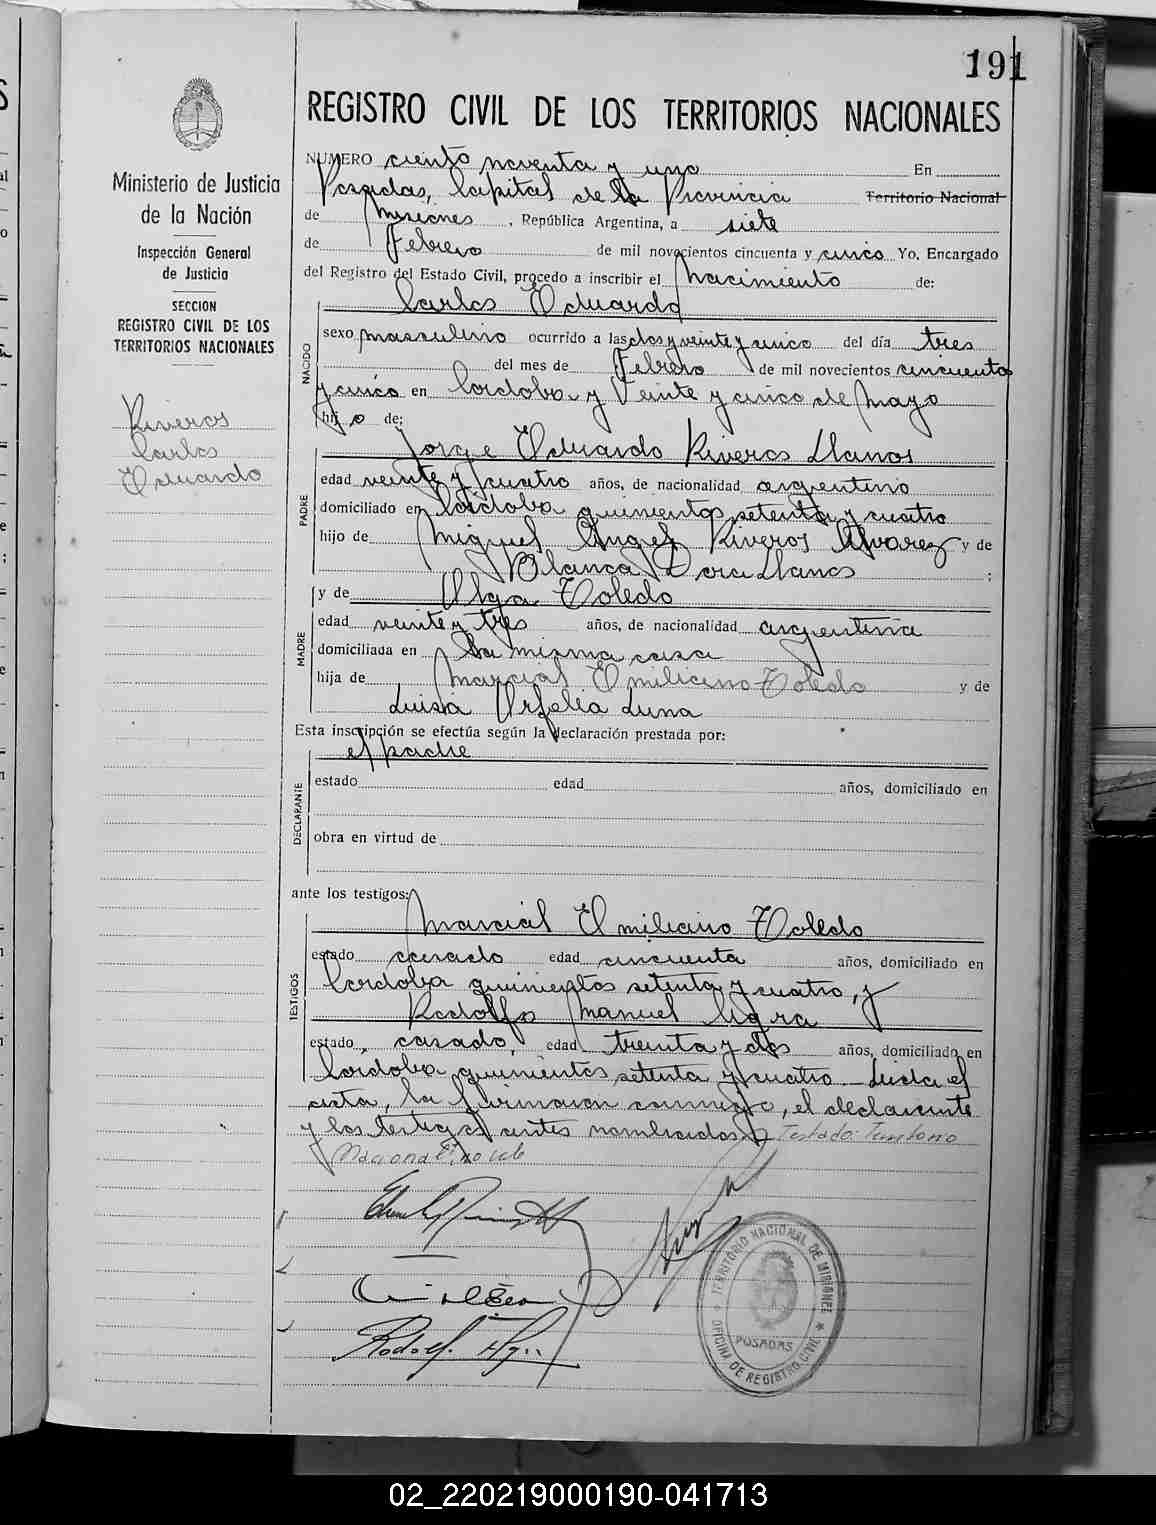 191
REGISTRO CIVIL DE LOS TERRITORIOS NACIONALES
Ministerio de Justicia
de la Nación
Inspección General
de Justicia
SECCION
REGISTRO CIVIL DE LOS
TERRITORIOS NACIONALES
Riveros
Carlos
Eduardo
NUMERO ciento noventa y uno En
Posadas, Capital de la Provincia Territorio Nacional
de Misiones, República Argentina, a siete
de Febrero de mil novecientos cincuenta y cinco Yo, Encargado
del Registro del Estado Civil, procedo a inscribir el nacimiento de:
NACIDO
Carlos Eduardo
sexo masculino ocurrido a las dos y veinte y cinco del día tres
del mes de Febrero de mil novecientos cincuenta
y cinco en Cordoba y Veinte y cinco de Mayo
hijo de:
PADRE
Jorge Eduardo Riveros Llanos
edad veinte y cuatro años, de nacionalidad argentino
domiciliado en Cordoba quinientos setenta y cuatro
hijo de Miguel Angel Riveros Alvarez y de
Blanca Dora Llanos ;
MADRE
y de Olga Toledo
edad veinte y tres años, de nacionalidad argentina
domiciliada en la misma casa
hija de Marcial Emiliano Toledo y de
Luisa Orfelia Luna
Esta inscripción se efectúa según la declaración prestada por:
DECLARANTE
el padre
estado edad años, domiciliado en
obra en virtud de
ante los testigos:
TESTIGOS
Marcial Emiliano Toledo
estado casado edad cincuenta años, domiciliado en
Cordoba quinientos setenta y cuatro, y
Rodolfo Manuel
estado, casado, edad treinta y dos años, domiciliado en
Cordoba quinientos setenta y cuatro - Leida el
acta, la firmaron conmigo, el declarante
y los testigos antes nombrados. Testado: Territorio
Nacional, no vale
TERRITORIO NACIONAL DE MISIONES
POSADAS
OFICINA DE REGISTRO CIVIL
02_220219000190-041713